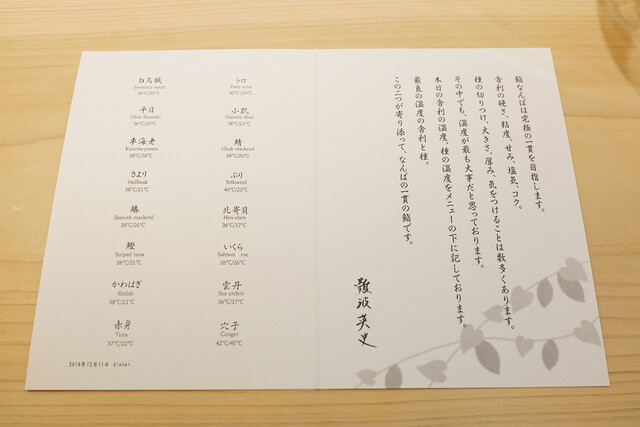 白烏賊
Swordtip squid
38℃/20℃
平目
Olive flounder
36℃/20℃
車海老
Kuruma prawn
38℃/30℃
さより
Halfbeak
38℃/21℃
鰆
Spanish mackerel
38℃/20℃
鰹
Striped tuna
38℃/21℃
かわはぎ
38℃/21℃
赤身
Tuna
37℃/22℃
トロ
Fatty tuna
40℃/24℃
小肌
Gizzard shad
38℃/21℃
鯖
Chub mackerel
38℃/20℃
ぶり
Yellowtail
40℃/23℃
北寄貝
Hen-clam
36℃/17℃
いくら
Salmon roe
26℃/26℃
雲丹
Sea urchin
36℃/17℃
穴子
Conger
42℃/45℃
2018年12月11日 dinner
鮨なんばは究極の一貫を目指します。
舎利の硬さ、粘度、甘み、塩気、コク。
種の切りつけ、大きさ、厚み、気をつけることは数多くあります。
その中でも、温度が最も大事だと思っております。
本日の舎利の温度、種の温度をメニューの下に記しております。
最良の温度の舎利と種。
この二つが寄り添って、なんばの一貫の鮨です。
難波英史